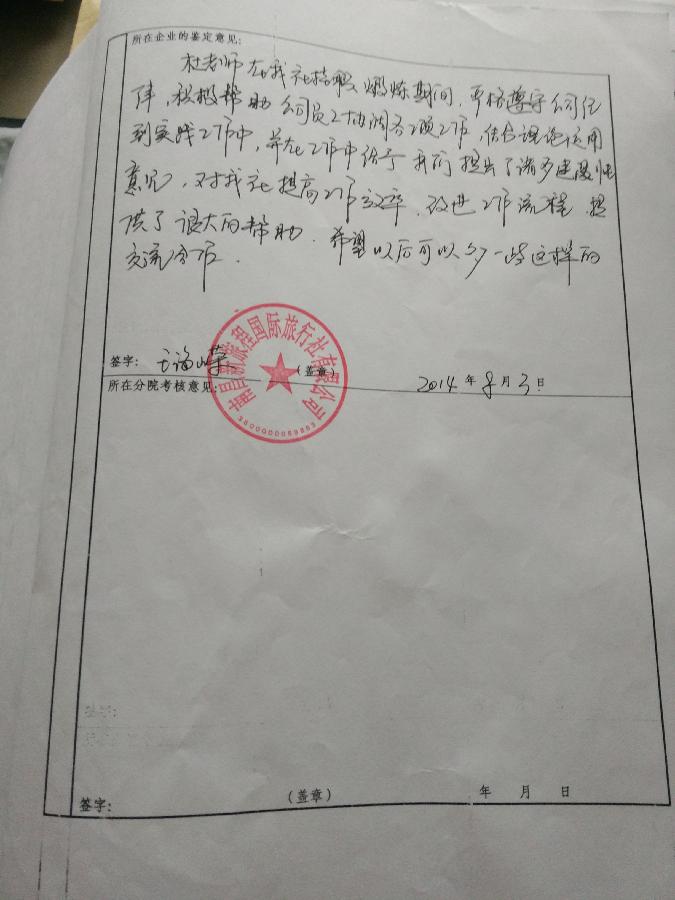 所在企业的鉴定意见:
杜老师在我社挂职锻炼期间,严格遵守公司纪
律,积极帮助公司员工协调各项工作,结合理论运用
到实践工作中,并在工作中给予我们提出了诸多建设性
意见,对我社提高工作效率,改进工作流程,提
供了很大的帮助.希望以后可以多一些这样的
交流合作.
签字:
(盖章)
2014年8月3日
新旅程国际旅行社有限公司
所在分院考核意见:
签字:
(盖章)
年 月 日